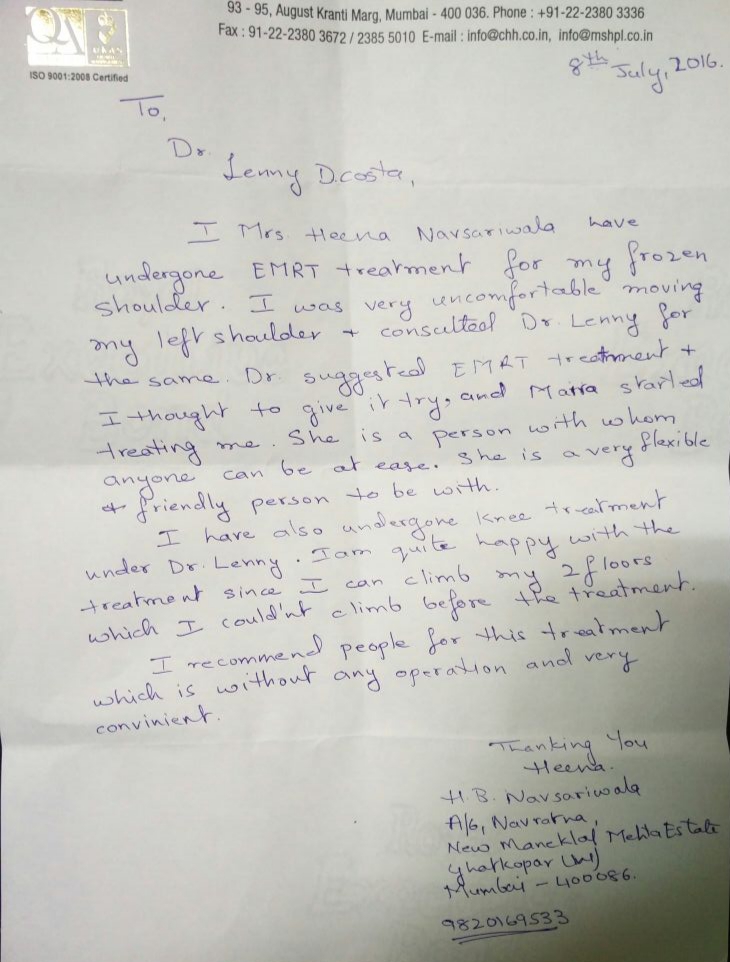 93 - 95, August Kranti Marg, Mumbai - 400 036. Phone : +91-22-2380 3336
Fax : 91-22-2380 3672 / 2385 5010 E-mail : info@chh.co.in, info@mshpl.co.in
ISO 9001:2008 Certified
8th July, 2016.
To,
Dr.
Lenny D.costa,
I Mrs. Heena Navsariwala have
undergone EMRT treatment for my frozen
shoulder. I was very uncomfortable moving
my left shoulder + consulted Dr. Lenny for
the same. Dr. suggested EMRT treatment +
I thought to give it try, and Marra started
treating me. She is a person with whom
anyone can be at ease. She is a very flexible
+ friendly person to be with.
I have also undergone knee treatment
under Dr. Lenny. I am quite happy with the
treatment since I can climb my 2 floors
which I could'nt climb before the treatment.
I recommend people for this treatment
which is without any operation and very
convinient.
Thanking You
Heena.
H.B. Navsariwala
A/6, Navratna,
New Maneklal Mehta Estate
Ghatkopar (W)
Mumbai - 400086.
9820169533